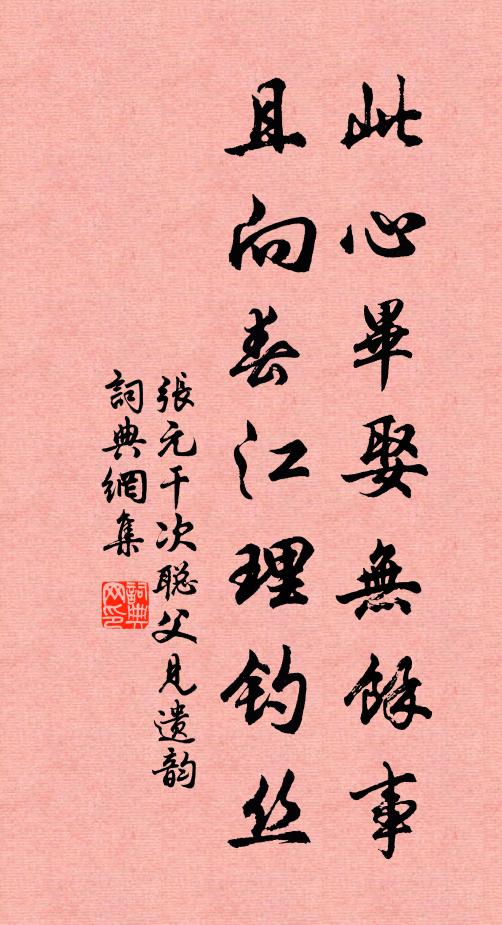 此心畢娶無餘事
且向春江理釣丝
張元干次聪父見遗韵
詞典網集
詞典网印